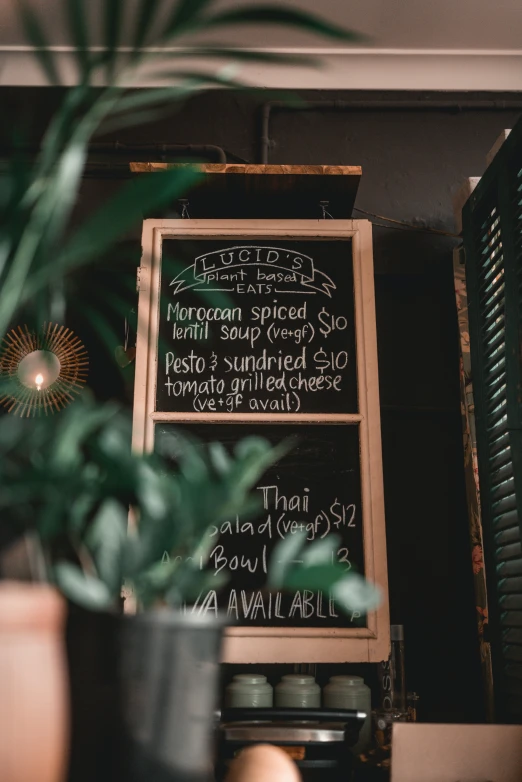 LUCID'S
plant based
EATS
Moroccan spiced
lentil soup (ve+gf) $10
Pesto & sundried $10
tomato grilled cheese
(ve+gf avail)
Thai
Salad (ve+gf) $12
Bowl 13
AVAILABLE